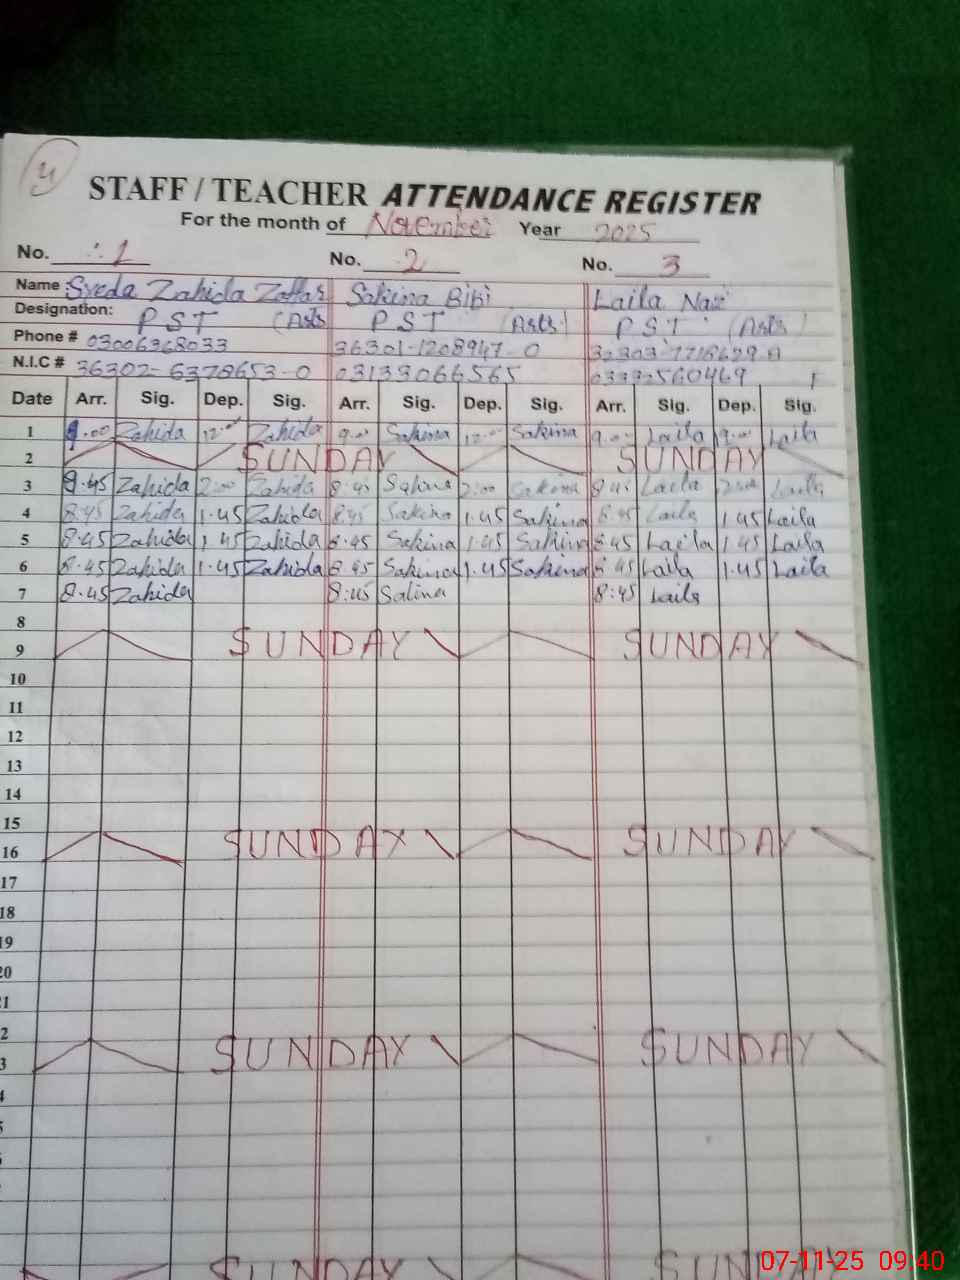 4
STAFF / TEACHER ATTENDANCE REGISTER
For the month of November Year 2025
No. 1 No. 2 No. 3
Name : Syeda Zahida Zaffar Sakina Bibi Laila Naz
Designation: PST (Arts PST (Arts) PST (Arts)
Phone # 03006368033 36301-1208947-0
N.I.C # 36302-6378653-0 03133066565 03332560469
Date Arr. Sig. Dep. Sig. Arr. Sig. Dep. Sig. Arr. Sig. Dep. Sig.
1 9.00 Zahida 12.00 Zahida 9.00 Sakina 12.00 Sakina 9.00 Laila Laila
2 SUNDAY SUNDAY
3 8.45 Zahida 2:00 Zahida 8:45 Sakina 2:00 Sakina 8:45 Laila 2:00 Laila
4 8:45 Zahida 1.45 Zahida 8:45 Sakina 1.45 Sakina 8.45 Laila 1.45 Laila
5 8.45 Zahida 1.45 Zahida 8.45 Sakina 1.45 Sakina 8.45 Laila 1.45 Laila
6 8.45 Zahida 1.45 Zahida 8.45 Sakina 1.45 Sakina 8.45 Laila 1.45 Laila
7 8.45 Zahida 8:45 Sakina 8:45 Laila
8
9 SUNDAY SUNDAY
10
11
12
13
14
15
16 SUNDAY SUNDAY
17
18
19
20
21
2
3 SUNDAY SUNDAY
4
5
SUNDAY SUNDAY
07-11-25 09:40